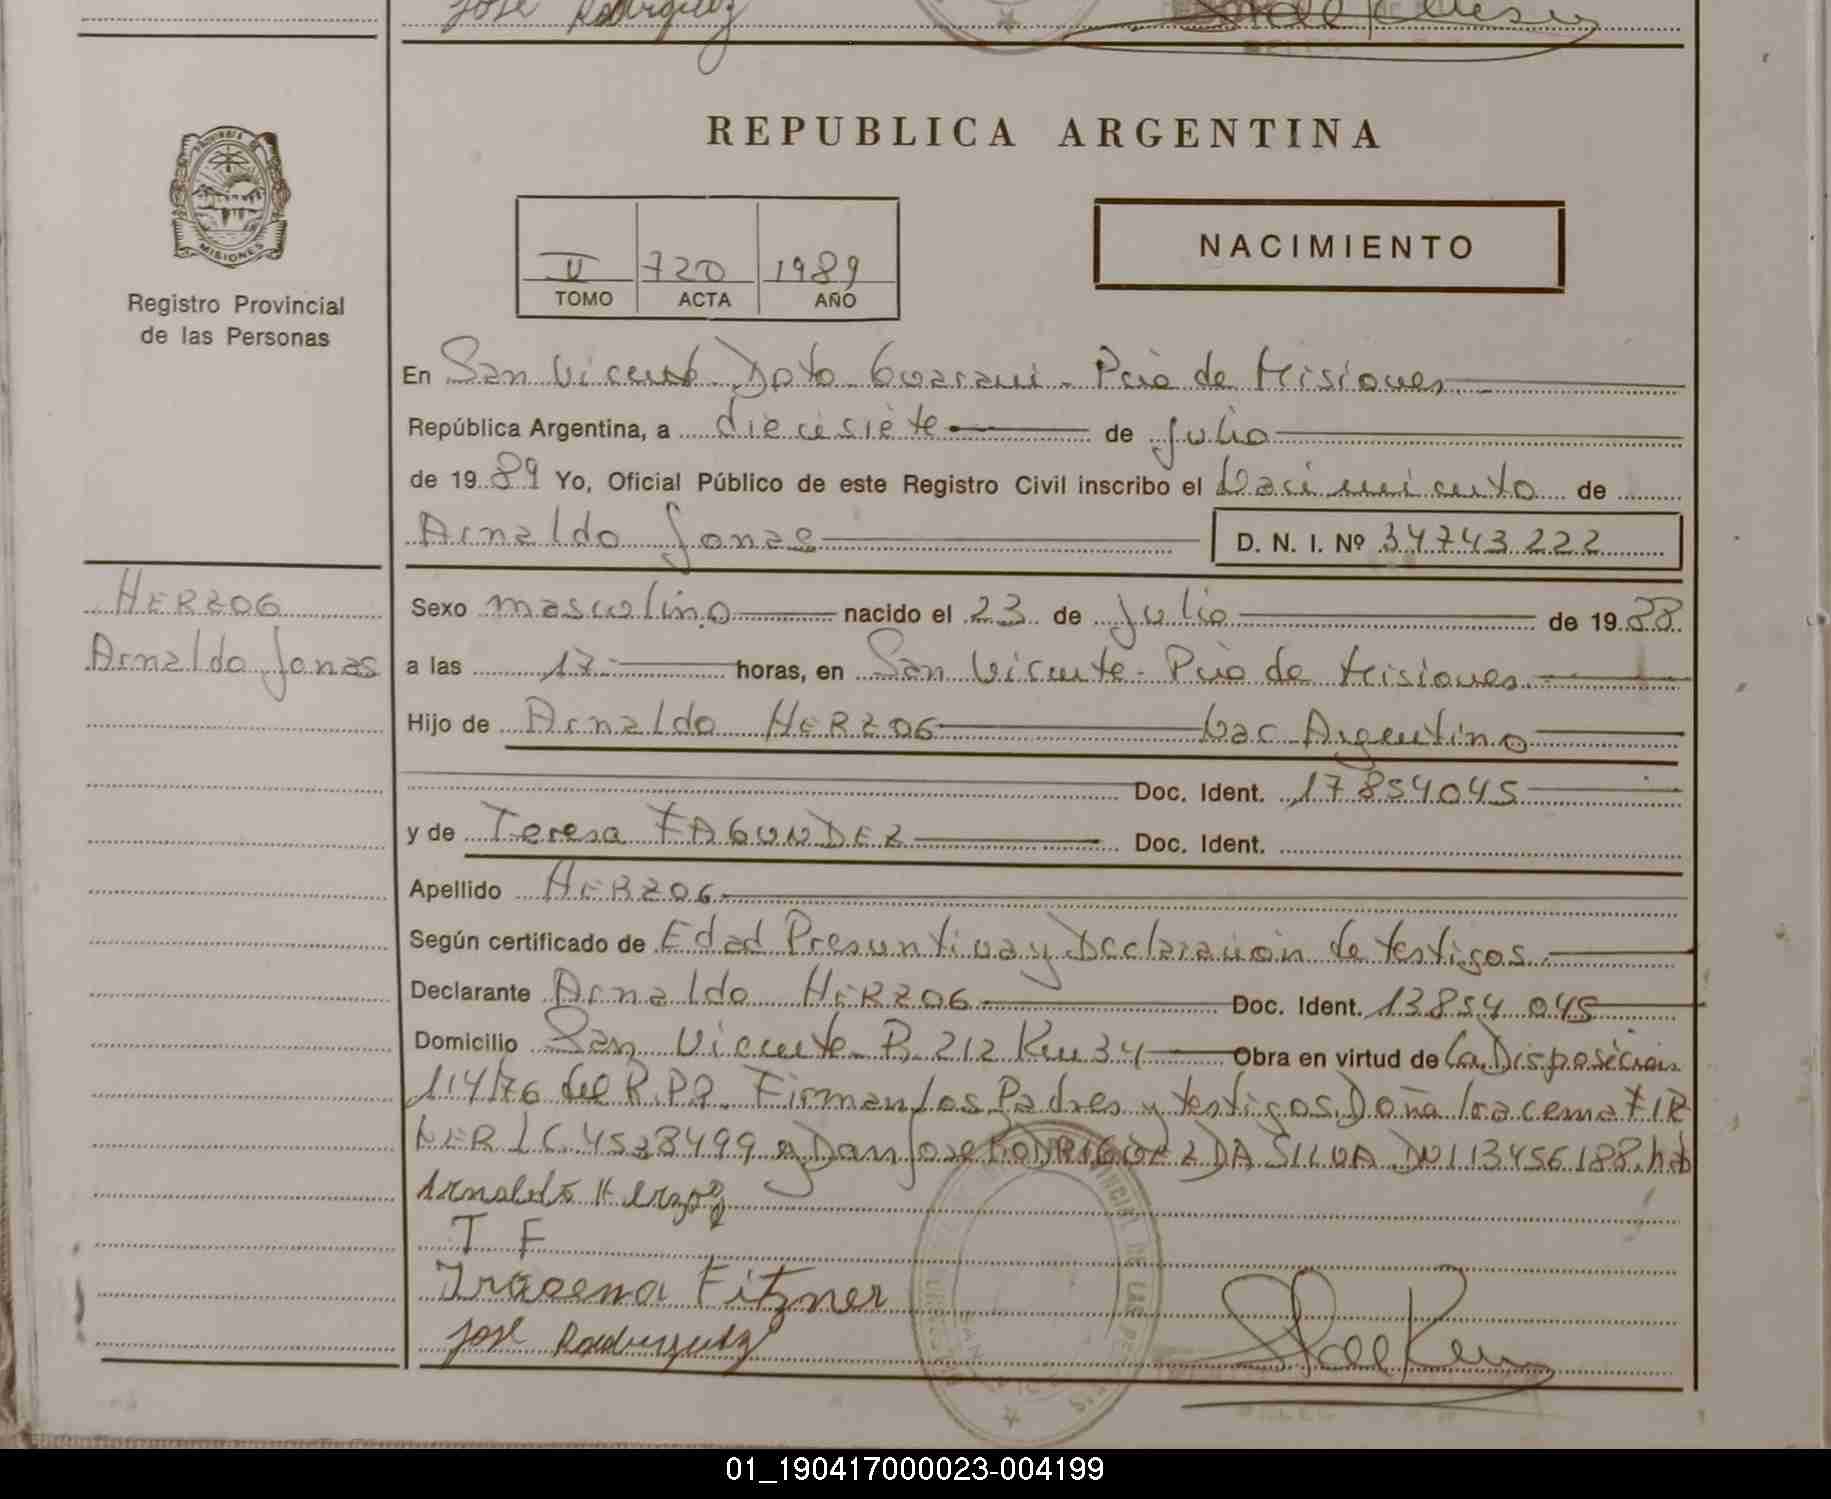 José Rodriguez
REPUBLICA ARGENTINA
MISIONES
Registro Provincial
de las Personas
II 720 1989
TOMO ACTA AÑO
NACIMIENTO
En San Vicente Dpto Guarani - Pcia de Misiones
República Argentina, a diecisiete de Julio
de 1989 Yo, Oficial Público de este Registro Civil inscribo el Nacimiento de
Arnaldo Jonas D. N. I. Nº 34743222
HERZOG
Arnaldo Jonas
Sexo masculino nacido el 23 de Julio de 1988
a las 17 horas, en San Vicente - Pcia de Misiones
Hijo de Arnaldo HERZOG Nac Argentino
Doc. Ident. 17854045
y de Teresa FAGUNDEZ Doc. Ident.
Apellido HERZOG
Según certificado de Edad Presuntiva y Declaración de testigos
Declarante Arnaldo HERZOG Doc. Ident. 13854045
Domicilio San Vicente R. 212 Km 34 Obra en virtud de La Disposición
114/76 del R.P.P. Firman los Padres y testigos Doña Iracema FIR
NER LC 4538499 y Don Jose RODRIGUEZ DA SILVA DNI 13456188. hab
Arnaldo Herzog
T F
Iracema Fitzner
José Rodriguez
01_190417000023-004199